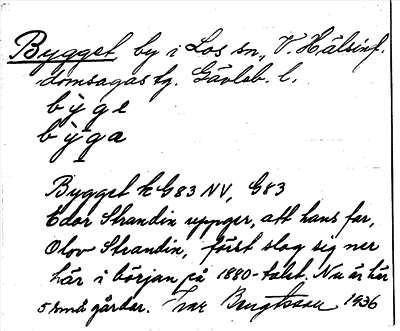 Bygget by i Los sn, V. Hälsingl.
domsagas tg. Gävleb. l.
bỳge
bỳga
Bygget k G83 NV, G83
Edor Strandin uppger, att hans far,
Olov Strandin, först slog sig ner
här i början på 1880-talet. Nu är här
5 små gårdar. Ivar Bengtsson 1936